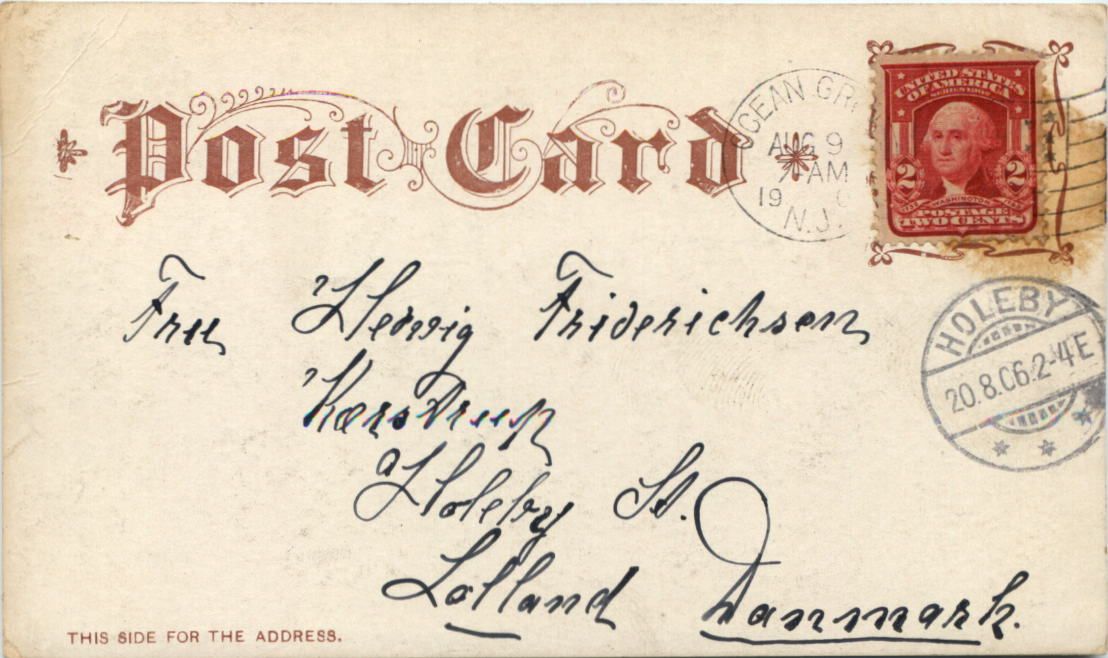 Post Card
OCEAN GR
AUG 9
7 AM
19
N.J.
UNITED STATES
OF AMERICA
SERIES 1902
2 2
1732 WASHINGTON 1799
POSTAGE
TWO CENTS
HOLEBY
20.8.06.2-4E
Fru Hedvig Friderichsen
Kærstrup
Holeby St.
Lolland Danmark.
THIS SIDE FOR THE ADDRESS.